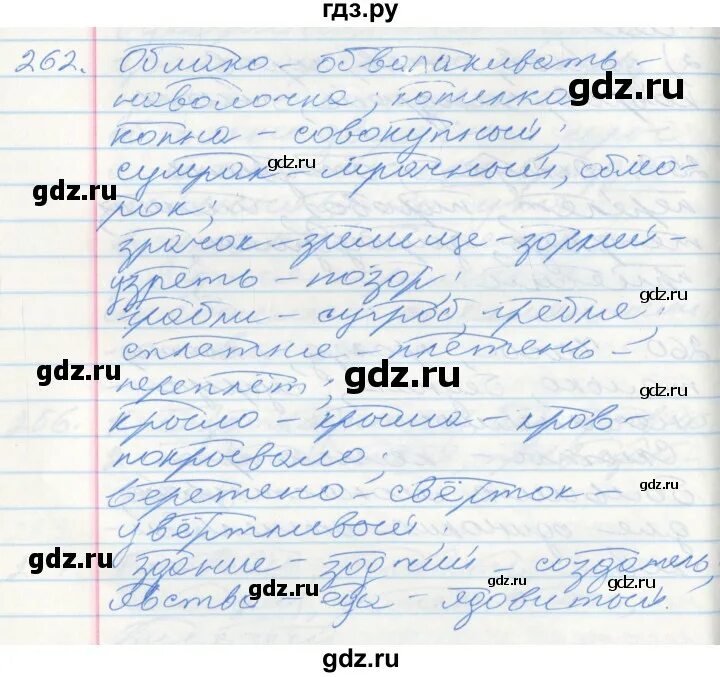 гдз.ру
262. Облако – обволакивать –
наволочка; копилка –
gdz.ru
копна – совокупный;
gdz.ru
сумрак – мрачный, обмо-
gdz.ru
рок;
зрачок – зрелище – зоркий –
узреть – позор;
gdz.ru
грабли – сугроб, гребле;
gdz.ru
сплетние – плетень –
gdz.ru
переплёт;
gdz.ru
крыло – крыша – кров –
gdz.ru
покрывало;
gdz.ru
веретено – свёрток –
увёртливый;
gdz.ru
здание – зодчий – создатель;
gdz.ru
gdz.ru
gdz.ru
явства – еда – ядовитый.
gdz.ru